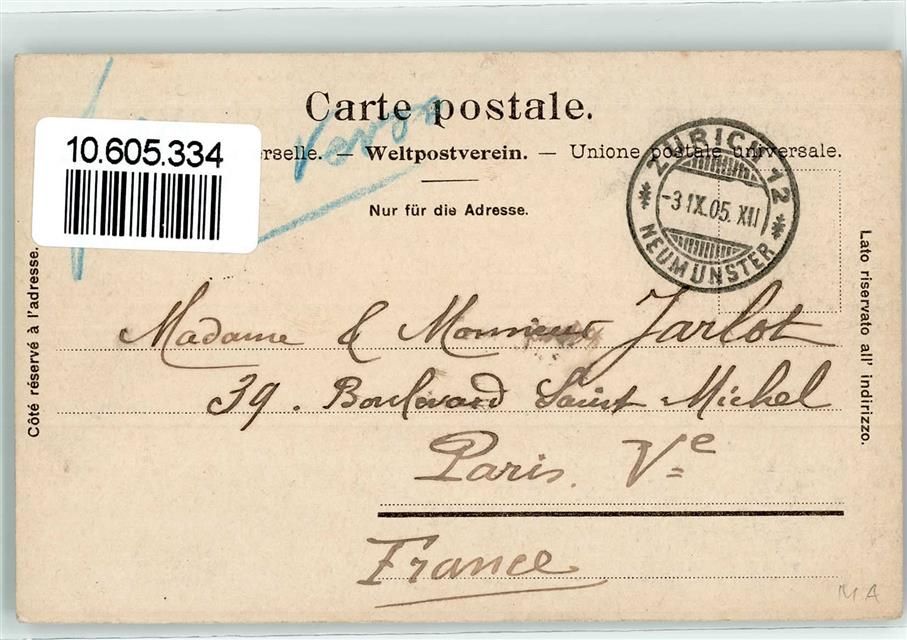 Carte postale.
10.605.334
erselle. — Weltpostverein. — Unione postale universale.
Nur für die Adresse.
ZÜRICH 12
-3.IX.05. XII
NEUMÜNSTER
Côté réservé à l'adresse.
Lato riservato all' indirizzo.
Madame & Monsieur Jarlot
39. Boulevard Saint Michel
Paris. Vᵉ
France
MA